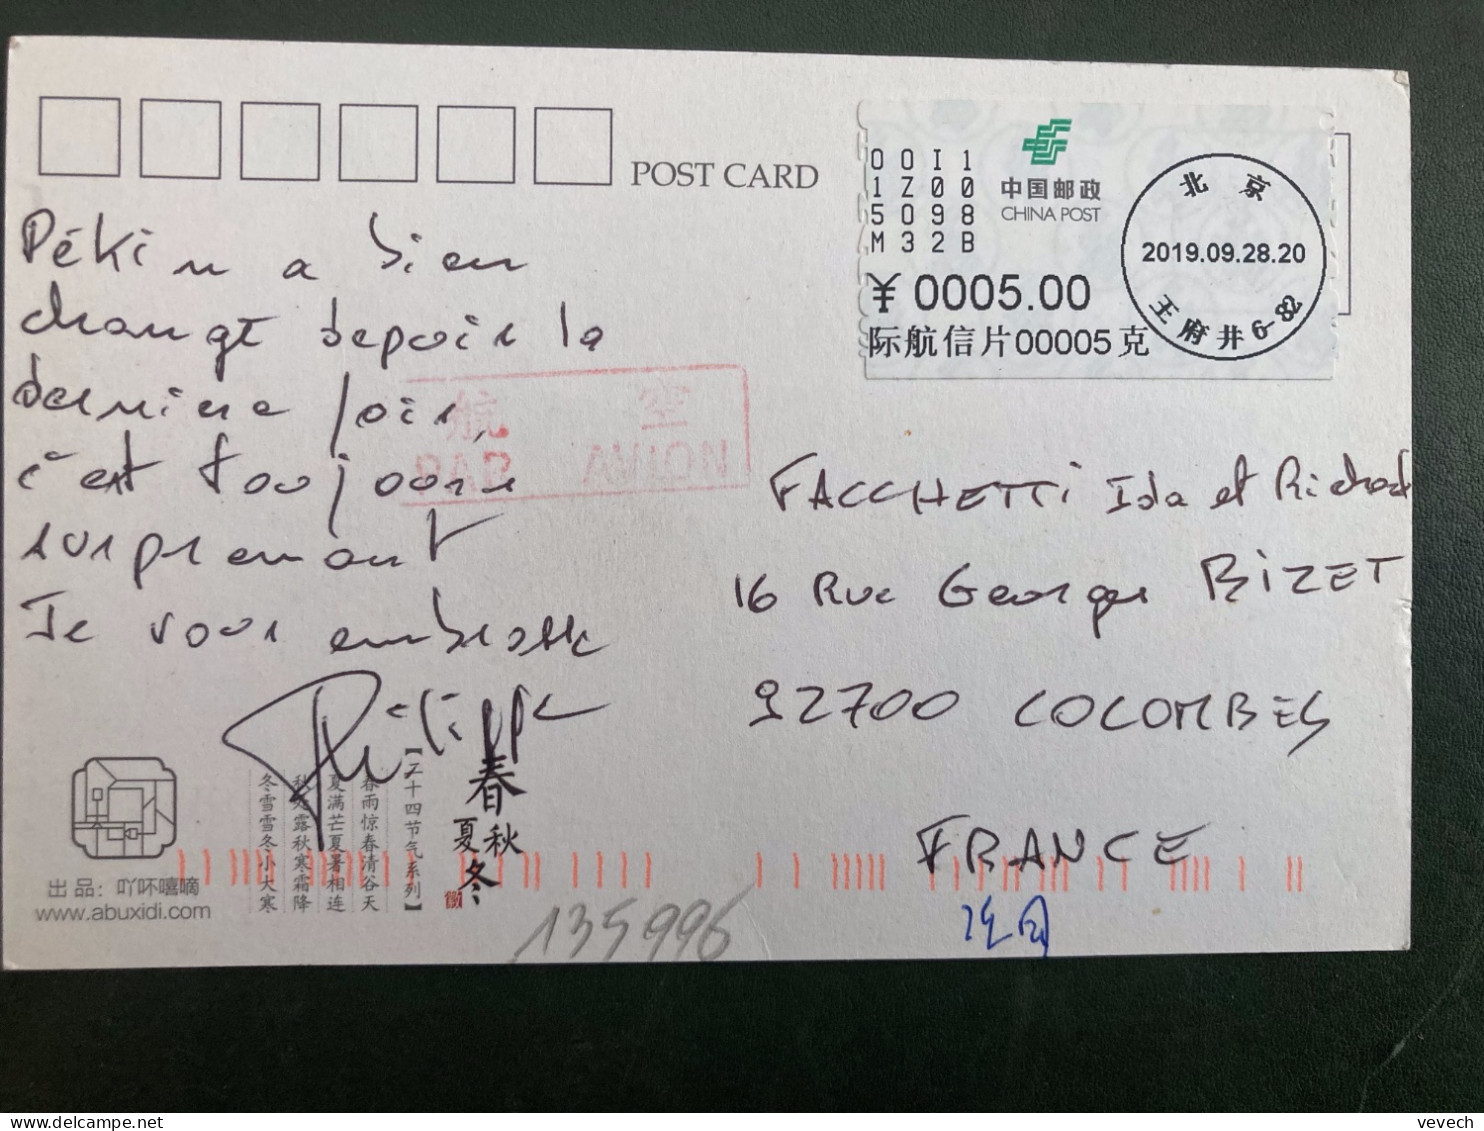 POST CARD
0 0 I 1
1 Z 0 0
5 0 9 8
M 3 2 B
中国邮政
CHINA POST
¥ 0005.00
际航信片00005克
北京
2019.09.28.20
王府井6-82
Pékin a bien
changé depuis la
dernière fois,
c'est toujours
surprenant
Je vous embrasse
Philippe
航 空
PAR AVION
FACCHETTI Ida et Richard
16 Rue Georges BIZET
92700 COLOMBES
FRANCE
法国
【二十四节气系列】
春雨惊春清谷天
夏满芒夏暑相连
秋处露秋寒霜降
冬雪雪冬小大寒
春
夏 秋
冬
出品：吖吥嘻嘀
www.abuxidi.com
135996
delcampe.net
vevech